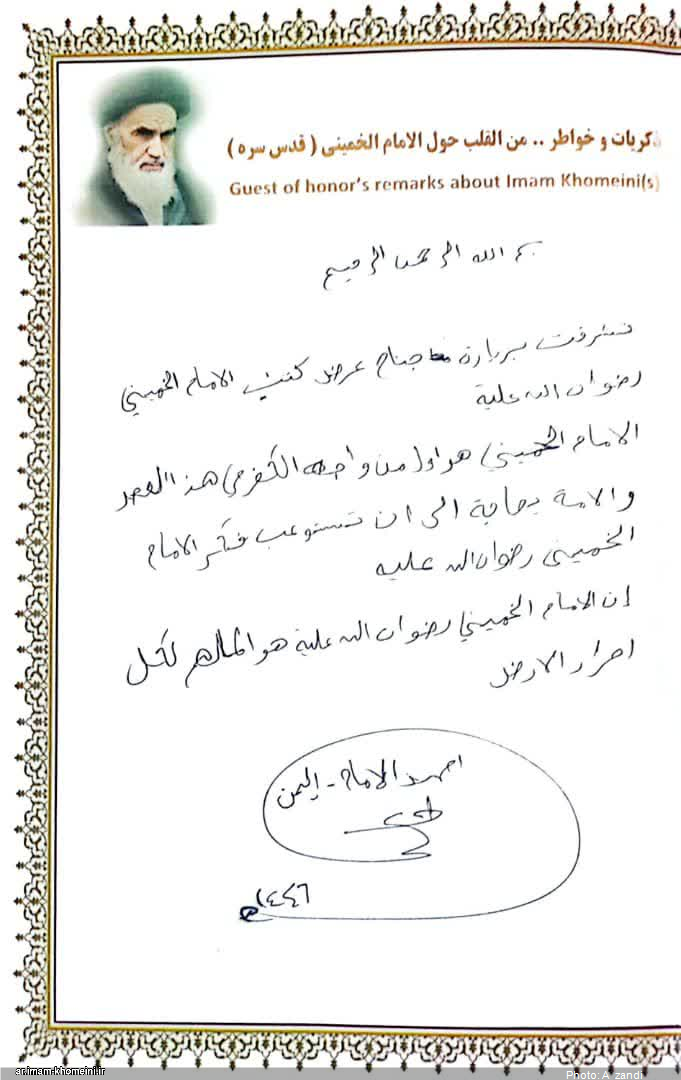 ذكريات و خواطر .. من القلب حول الامام الخميني ( قدس سره )
Guest of honor's remarks about Imam Khomeini(s)
بسم الله الرحمن الرحيم
تشرفت بزيارة جناح عرض كتب الامام الخميني
رضوان الله علية
الامام الخميني هو اول من واجه الكفر في هذا العصر
والامة بحاجة الى ان تستوعب فكر الامام
الخميني رضوان الله عليه
إن الامام الخميني رضوان الله علية هو الملهم لكل
احرار الارض
احمد الامام - اليمن
١٤٤٦ه
ar.imam-khomeini.ir
Photo: A. zandi